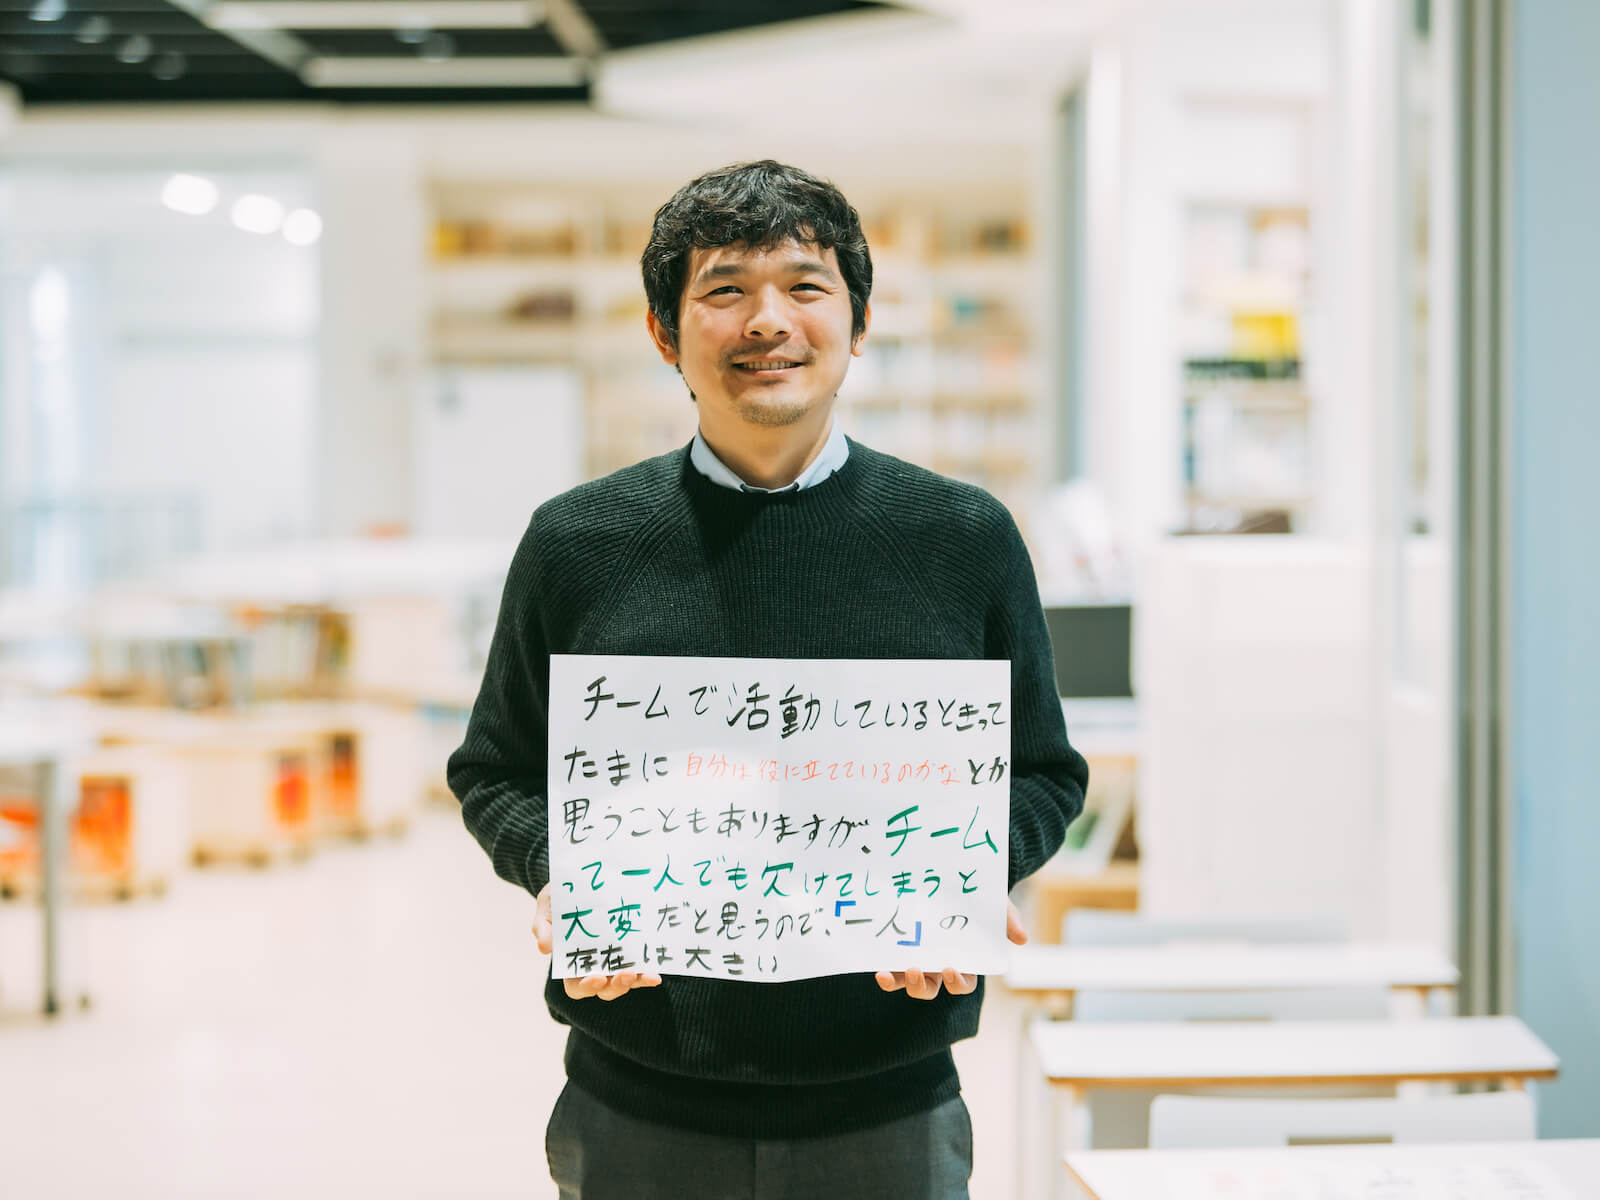 チームで活動しているときって
たまに自分は役に立てているのかなとか
思うこともありますが、チーム
って一人でも欠けてしまうと
大変だと思うので、「一人」の
存在は大きい